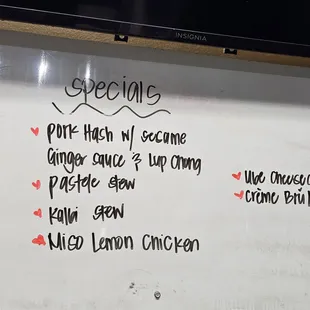 INSIGNIA
specials
Pork Hash w/ sesame
Ginger sauce & Lup Chong
Pastele stew
Kalbi stew
Miso Lemon Chicken
Ube
Crème